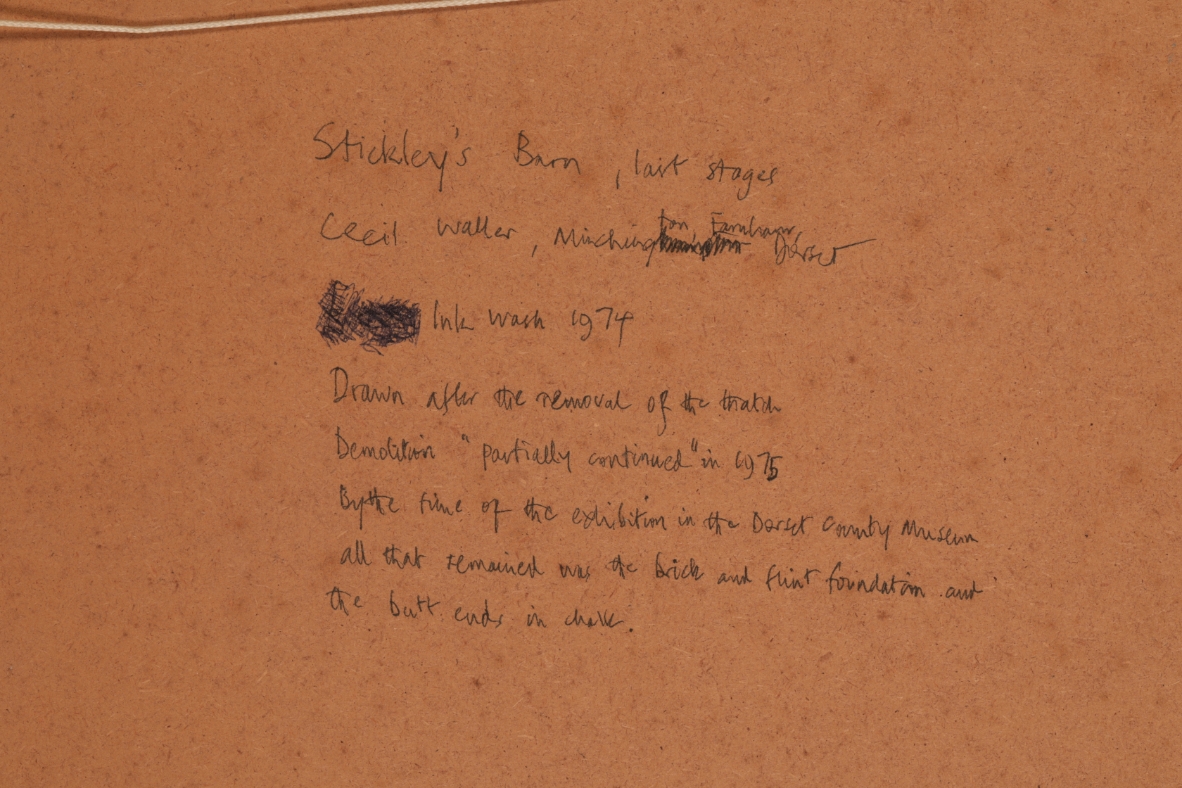 Stickley's Barn, last stages
Cecil Waller, Minchington, Farnham, Dorset
Ink wash 1974
Drawn after the removal of the thatch
Demolition "partially continued" in 1975
By the time of the exhibition in the Dorset County Museum
all that remained was the brick and flint foundation and
the butt ends in chalk.